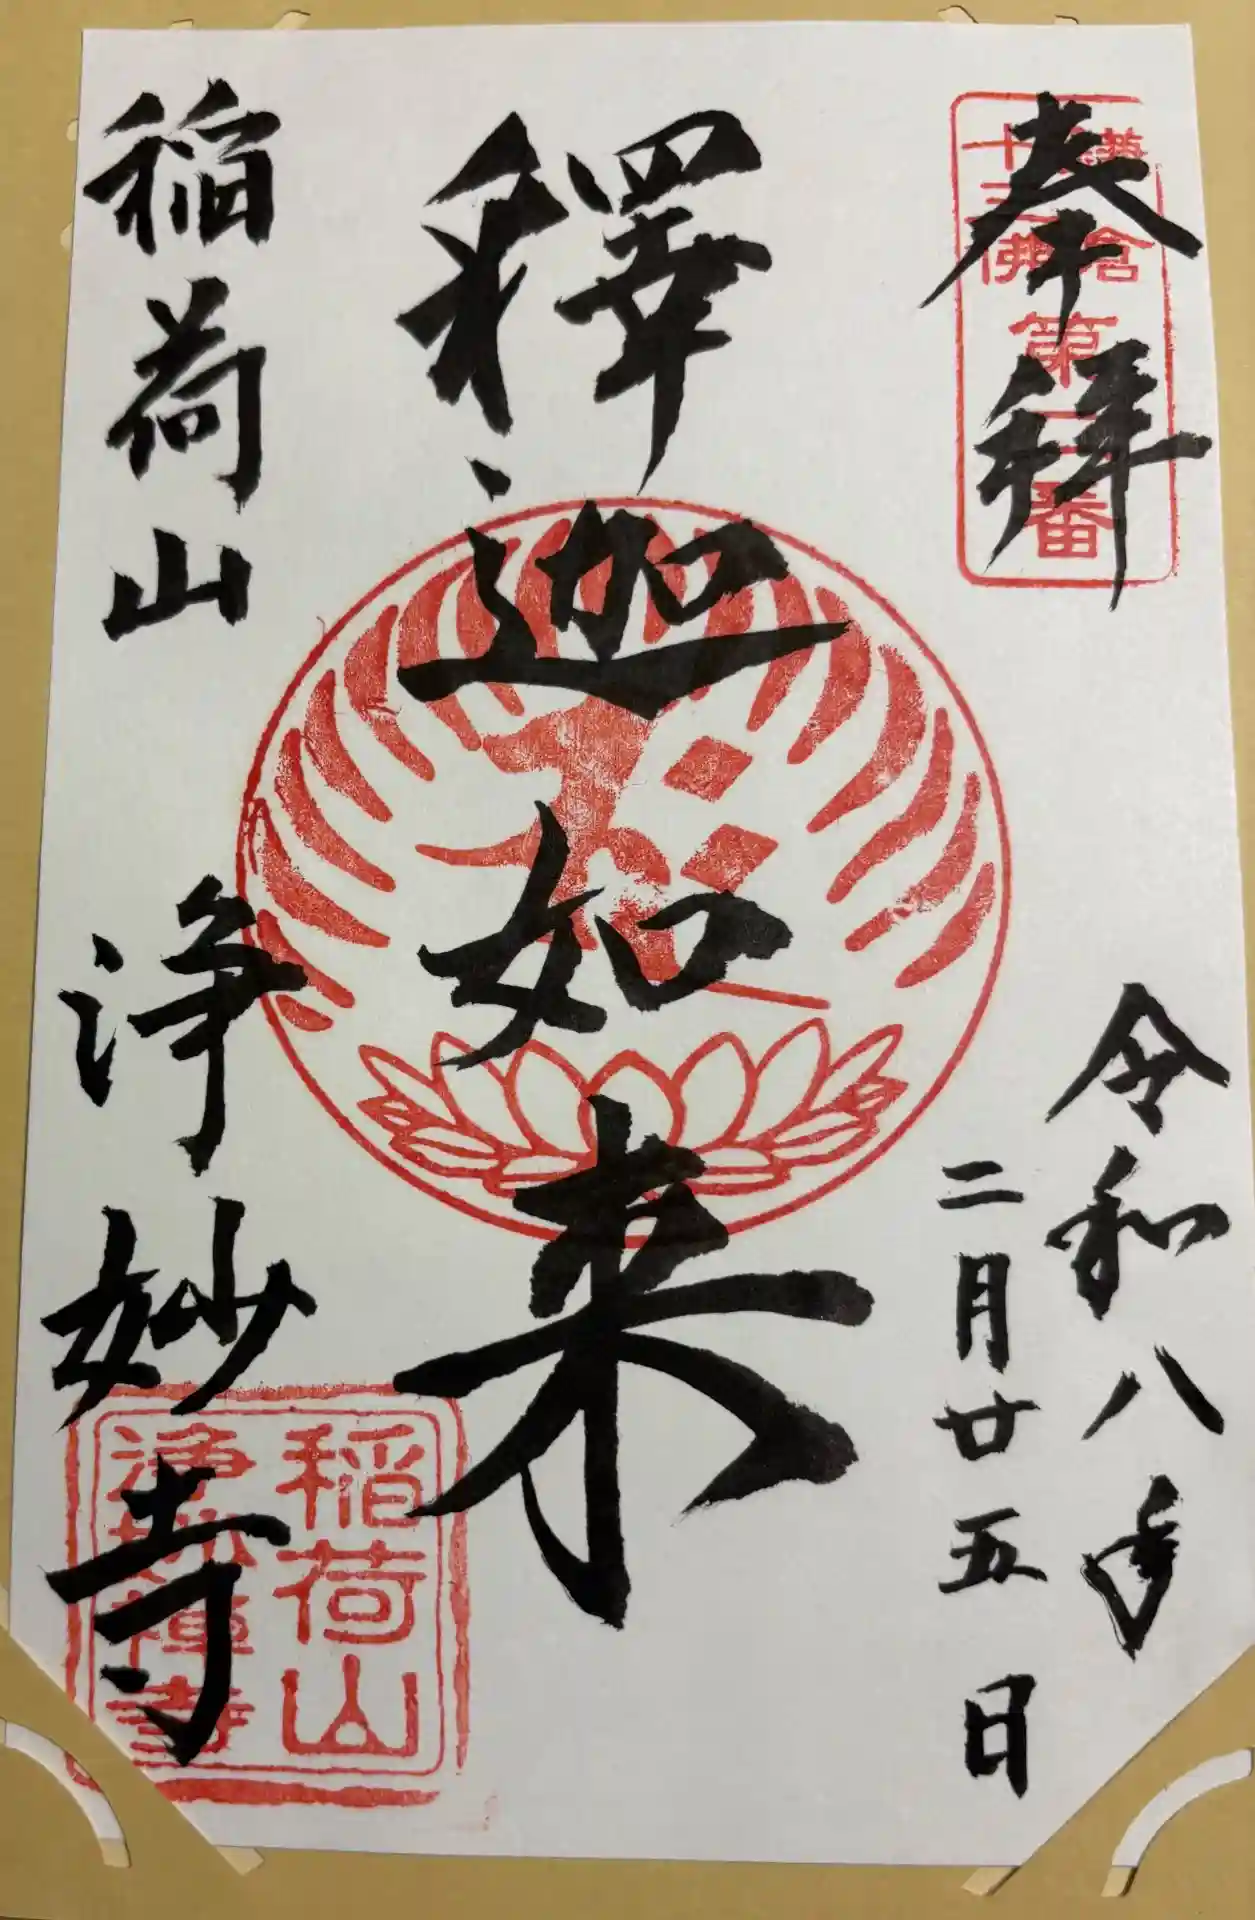 奉拝
鎌倉
十三佛
第二番
令和八年
二月廿五日
釋迦如来
稲荷山
浄妙寺
稲荷山
浄妙禅寺